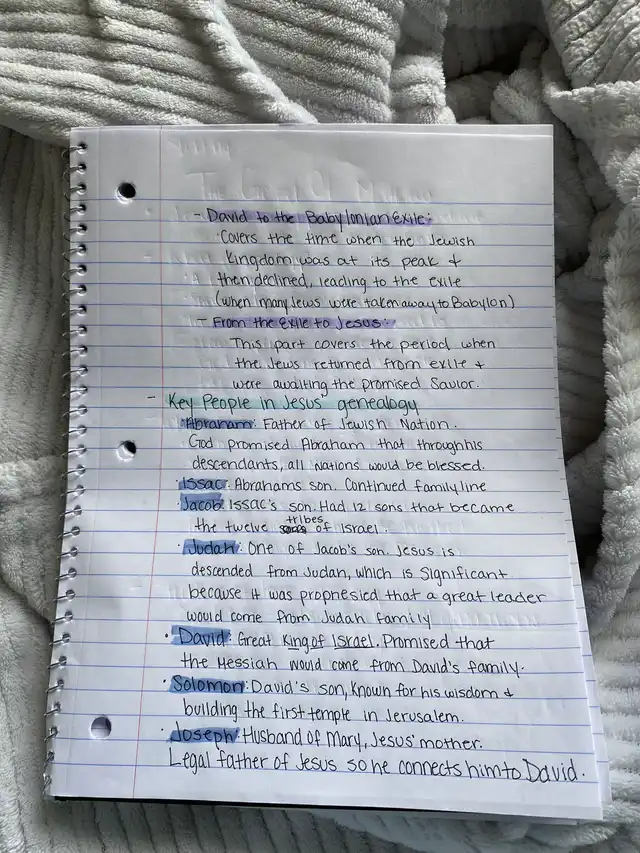 - David to the Babylonian Exile:
Covers the time when the Jewish
Kingdom was at its peak &
then declined, leading to the exile
(when many Jews were taken away to Babylon)
- From the Exile to Jesus:
This part covers the period when
the Jews returned from exile &
were awaiting the promised Savior.
- Key People in Jesus' genealogy
· Abraham: Father of Jewish Nation.
God promised Abraham that through his
descendants, all Nations would be blessed.
· Issac: Abrahams son. Continued family line
· Jacob: Issac's son. Had 12 sons that became
the twelve tribes of Israel.
· Judah: One of Jacob's son. Jesus is
descended from Judah, which is significant
because it was prophesied that a great leader
would come from Judah family
· David: Great King of Israel. Promised that
the Messiah would come from David's family.
· Solomon: David's son, known for his wisdom &
building the first temple in Jerusalem.
· Joseph: Husband of Mary, Jesus' mother.
Legal father of Jesus so he connects him to David.